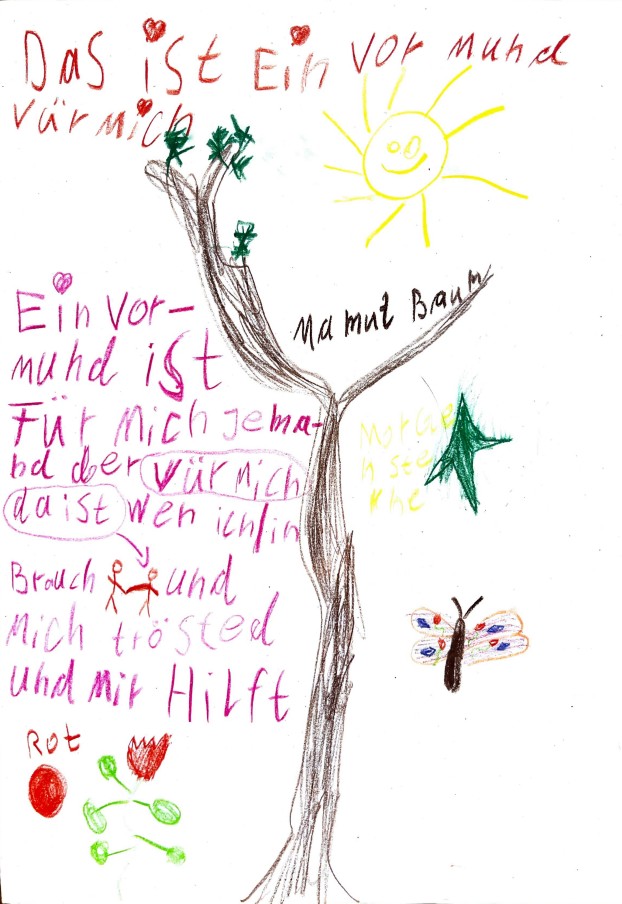 Das ist Ein Vor muhd
vür mich
Mamut Baum
Ein Vor-
muhd ist
Für Mich jema-
nd der vür mich
da ist wen ich ihn
Brauch und
Mich trösted
und Mir Hilft
Morge
n ste
rne
Rot